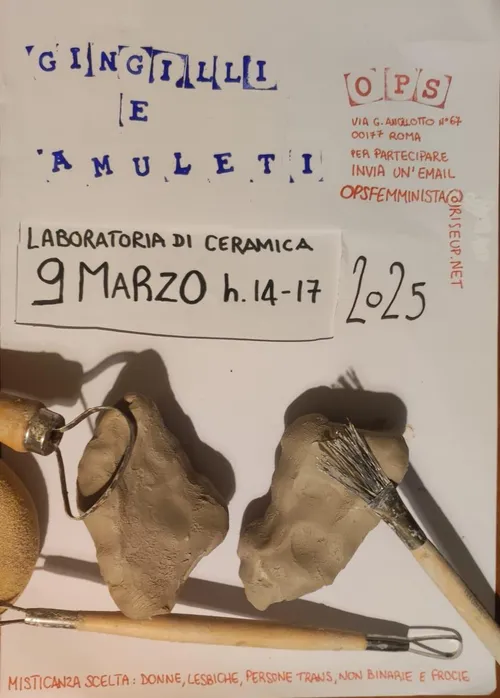 GINGILLI
E
AMULETI
OPS
VIA G. ANGLOTTO N°67
00177 ROMA
PER PARTECIPARE
INVIA UN'EMAIL
OPSFEMMINISTA@RISEUP.NET
LABORATORIA DI CERAMICA
9 MARZO h. 14-17
2025
MISTICANZA SCELTA: DONNE, LESBICHE, PERSONE TRANS, NON BINARIE E FROCIE